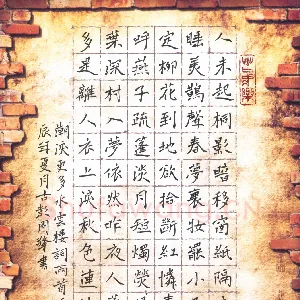 人未起桐影暗移窗紙隔
睡美鵲聲春夢裏妝罷小
定柳花到地欲拾斷紅憐
呼燕子疏篷淡月短燭熒
葉深村入夢依然昨夜人
多是離人衣上淚秋色連
更多水雲樓詞兩首
夏月古彭周書